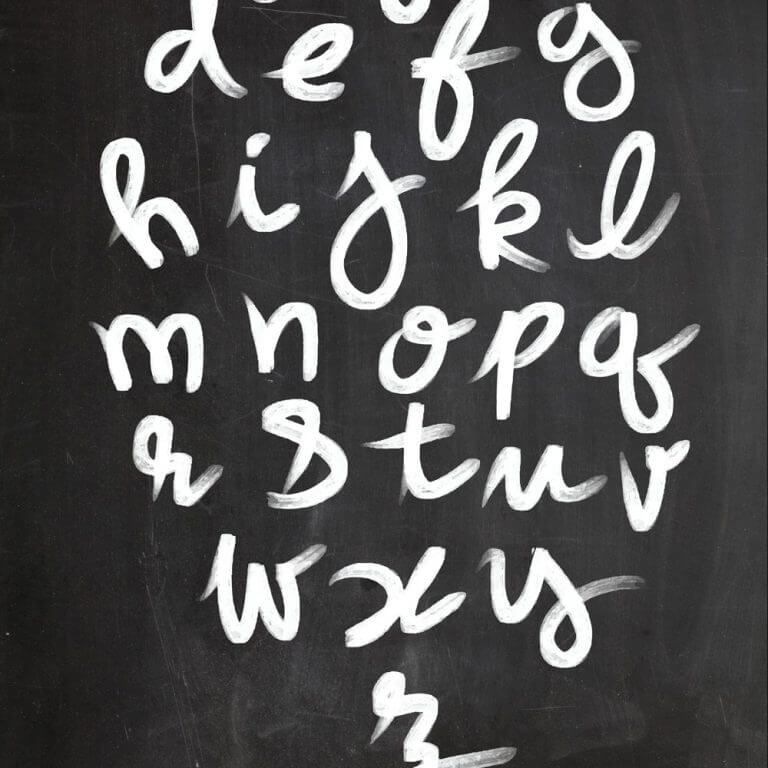 d e f g
h i j k l
m n o p q
r s t u v
w x y
z